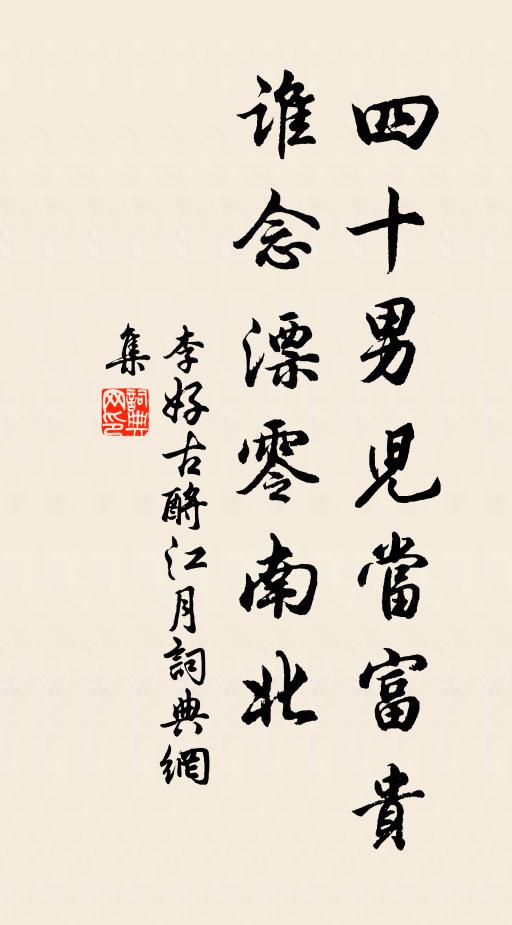 四十男兒當富貴
誰念漂零南北
李好古酹江月詞典網
集
詞典
网印